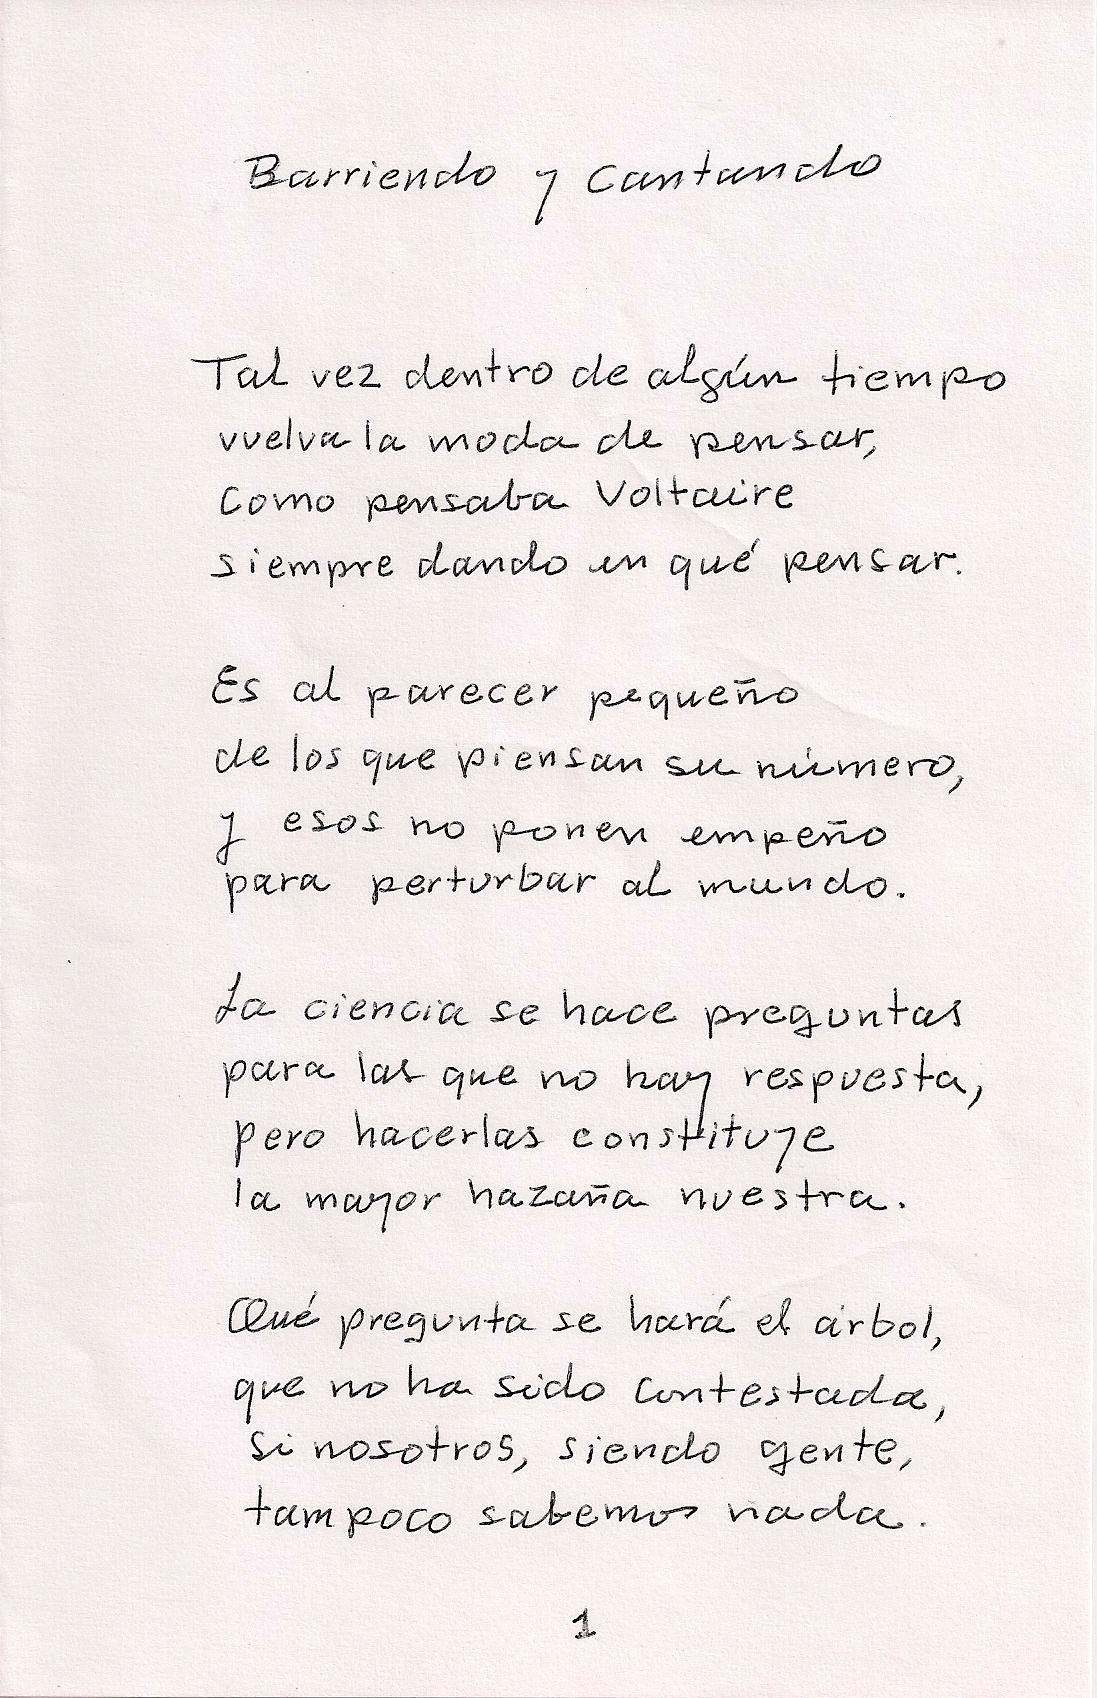 Barriendo y Cantando
Tal vez dentro de algún tiempo
vuelva la moda de pensar,
como pensaba Voltaire
siempre dando en qué pensar.
Es al parecer pequeño
de los que piensan su número,
y esos no ponen empeño
para perturbar al mundo.
La ciencia se hace preguntas
para las que no hay respuesta,
pero hacerlas constituye
la mayor hazaña nuestra.
Qué pregunta se hará el árbol,
que no ha sido contestada,
si nosotros, siendo gente,
tampoco sabemos nada.
1